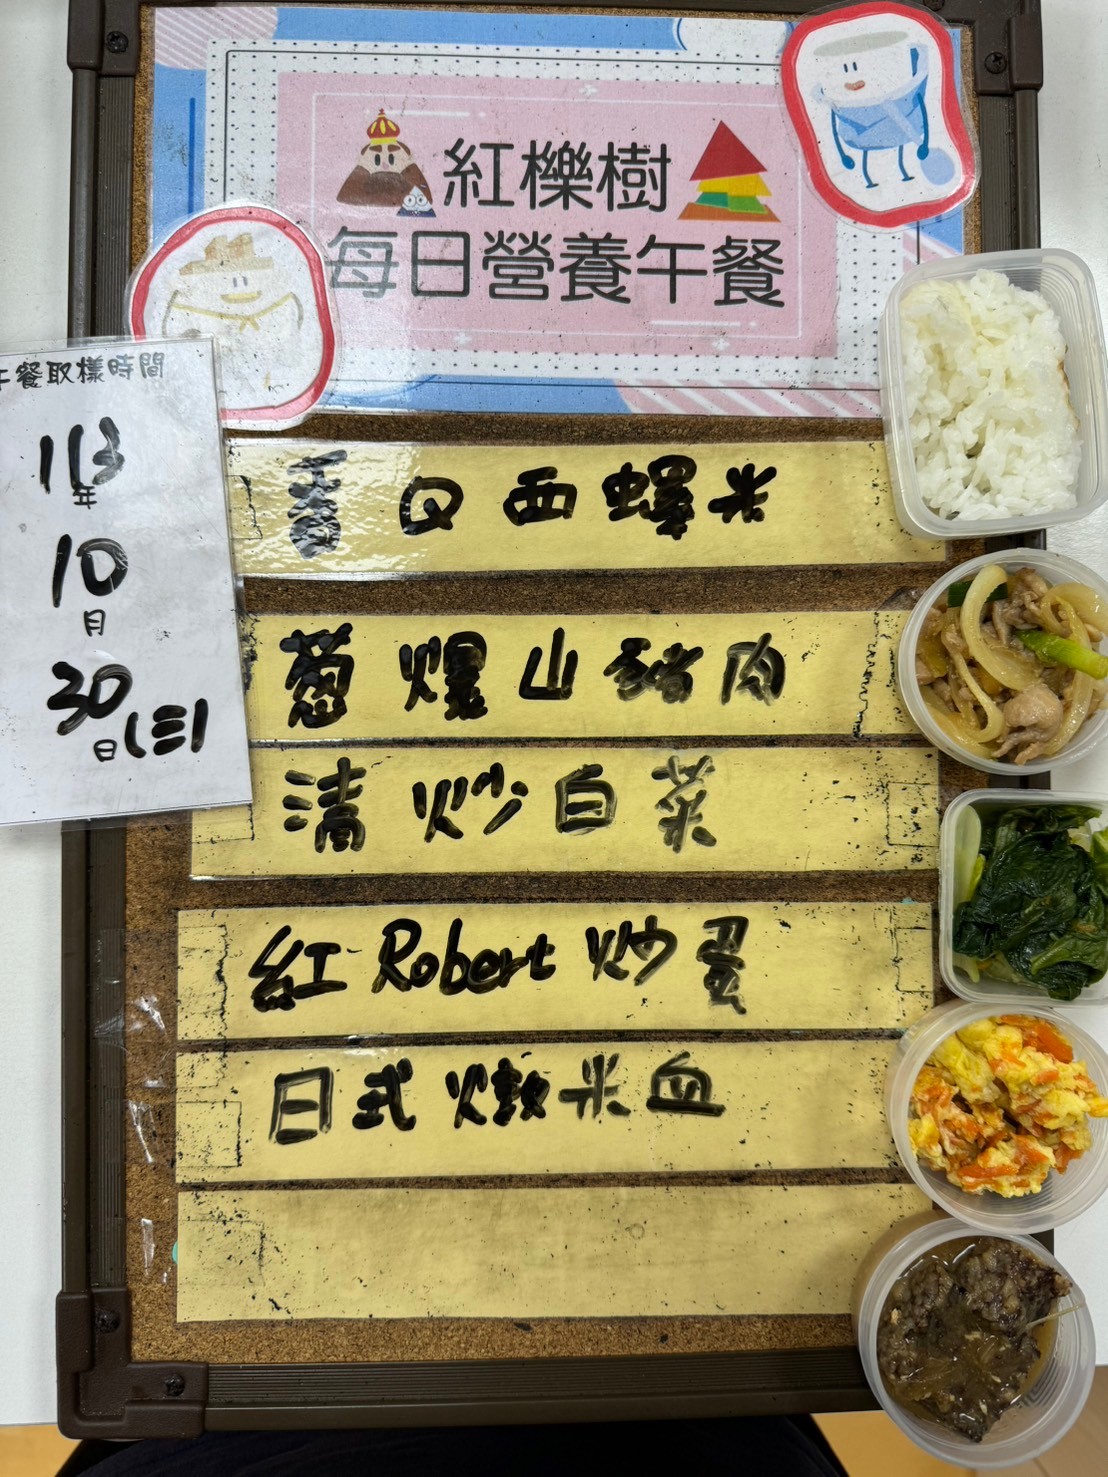 紅櫟樹
每日營養午餐
午餐取樣時間
113
年
10
月
30
日(三)
香Q西螺米
蔥爆山豬肉
清炒白菜
紅Robert炒蛋
日式燉米血